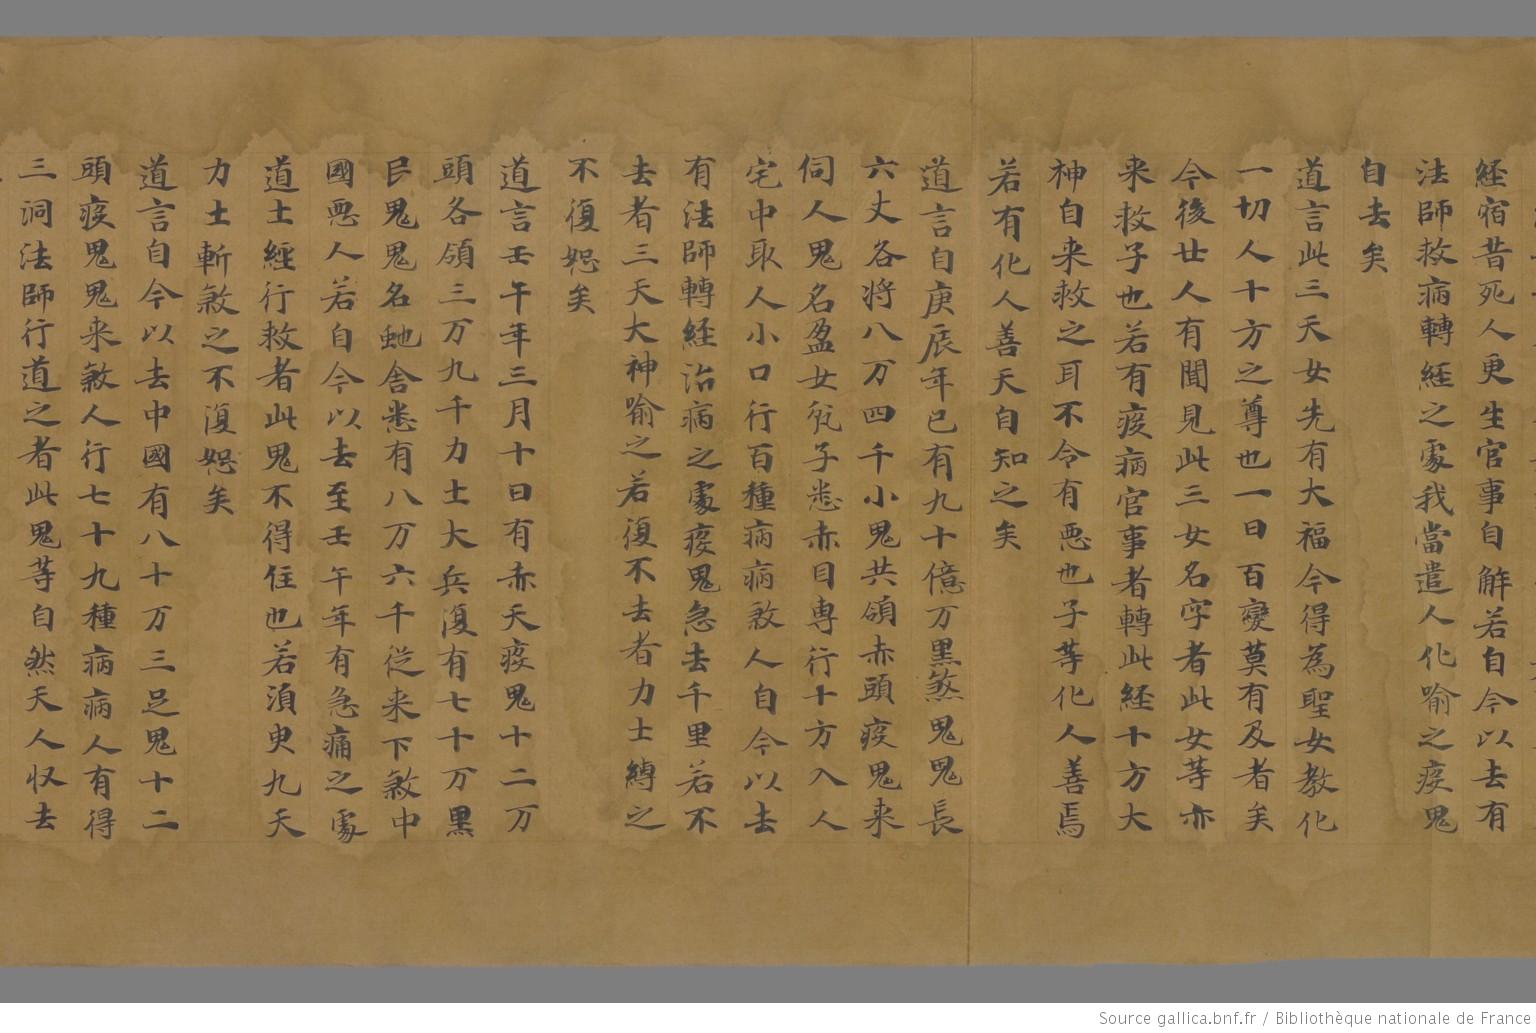 経宿昔死人更生官事自解若自今以去有
法師救病轉經之處我當遣人化喻之疫鬼
自去矣
道言此三天女先有大福今得為聖女教化
一切人十方之尊也一日百變莫有及者矣
今後廿人有聞見此三女名字者此女等亦
来救子也若有疫病官事者轉此経十方大
神自来救之耳不令有悪也子等化人善焉
若有化人善天自知之矣
道言自庚辰年已有九十億万黒煞鬼鬼長
六丈各将八万四千小鬼共領赤頭疫鬼来
伺人鬼名盈女子悉赤目専行十方入人
宅中取人小口行百種病病煞人自今以去
有法師轉経治病之處疫鬼急去千里若不
去者三天大神喻之若復不去者力士縛之
不復恕矣
道言壬午年三月十日有赤天疫鬼十二万
頭各領三万九千力士大兵復有七十万黒
鬼鬼名虵舎悉有八万六千従来下煞中
國悪人若自今以去至壬午年有急痛之處
道士經行救者此鬼不得住也若須臾九天
力士斬煞之不復恕矣
道言自今以去中國有八十万三足鬼十二
頭疫鬼鬼来煞人行七十九種病病人有得
三洞法師行道之者此鬼等自然天人收去
Source gallica.bnf.fr / Bibliothèque nationale de France